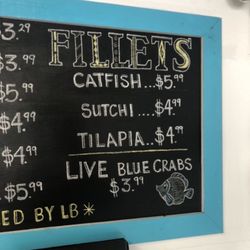 3.29
$3.99
$5.99
$4.99
$4.99
$5.99
ED BY LB*
FILLETS
CATFISH...$5.99
SUTCHI....$4.99
TILAPIA..$4.99
LIVE BLUE CRABS
$3.99